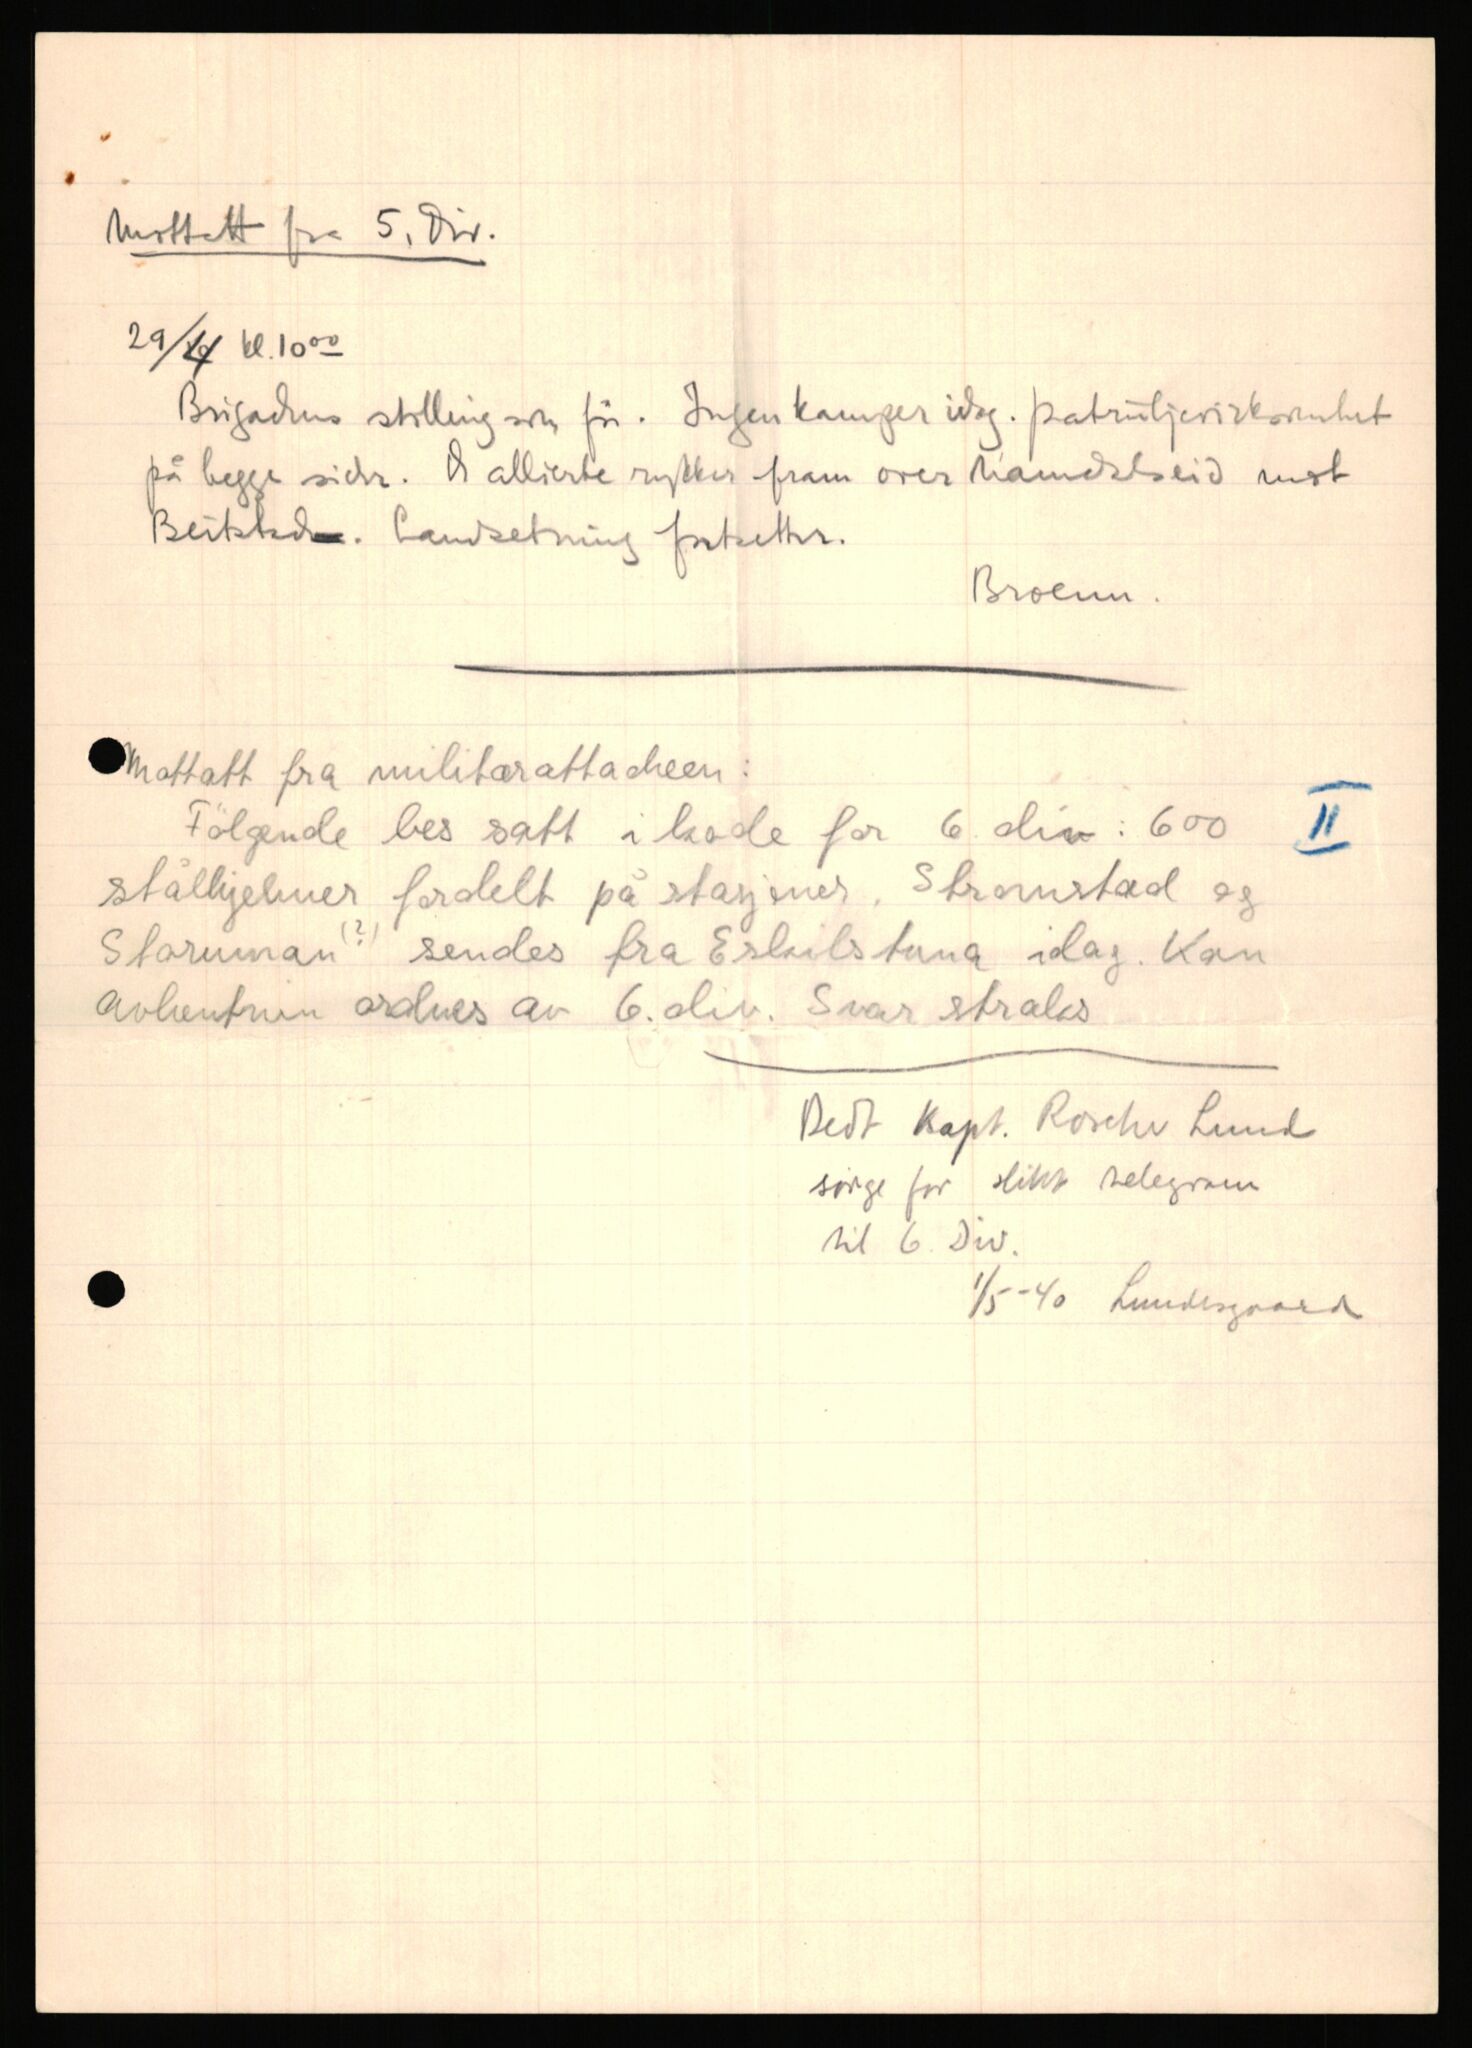 Mottatt fra 5. Div.
29/4 kl. 10⁰⁰
Brigadens stilling som før. Ingen kamper idag. Patruljevirksomhet
på begge sider. De allierte rykker fram over Namdalseid mot
Beitstad. Landsetning fortsetter.
Broenn.
Mottatt fra militærattacheen:
Følgende bes satt i kode for 6 div: 600
II
stålhjelmer fordelt på stasjoner. Stromstad og
Storuman (?) sendes fra Eskilstuna idag. Kan
avhentning ordnes av 6. div. Svar straks
Bedt Kapt. Roscher Lund
sørge for slikt telegram
til 6. Div.
1/5-40 Lundesgaard